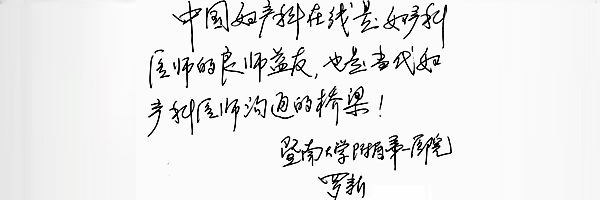 中国妇产科在线是妇产科
医师的良师益友，也是当代妇
产科医师沟通的桥梁！
暨南大学附属第一医院
罗新